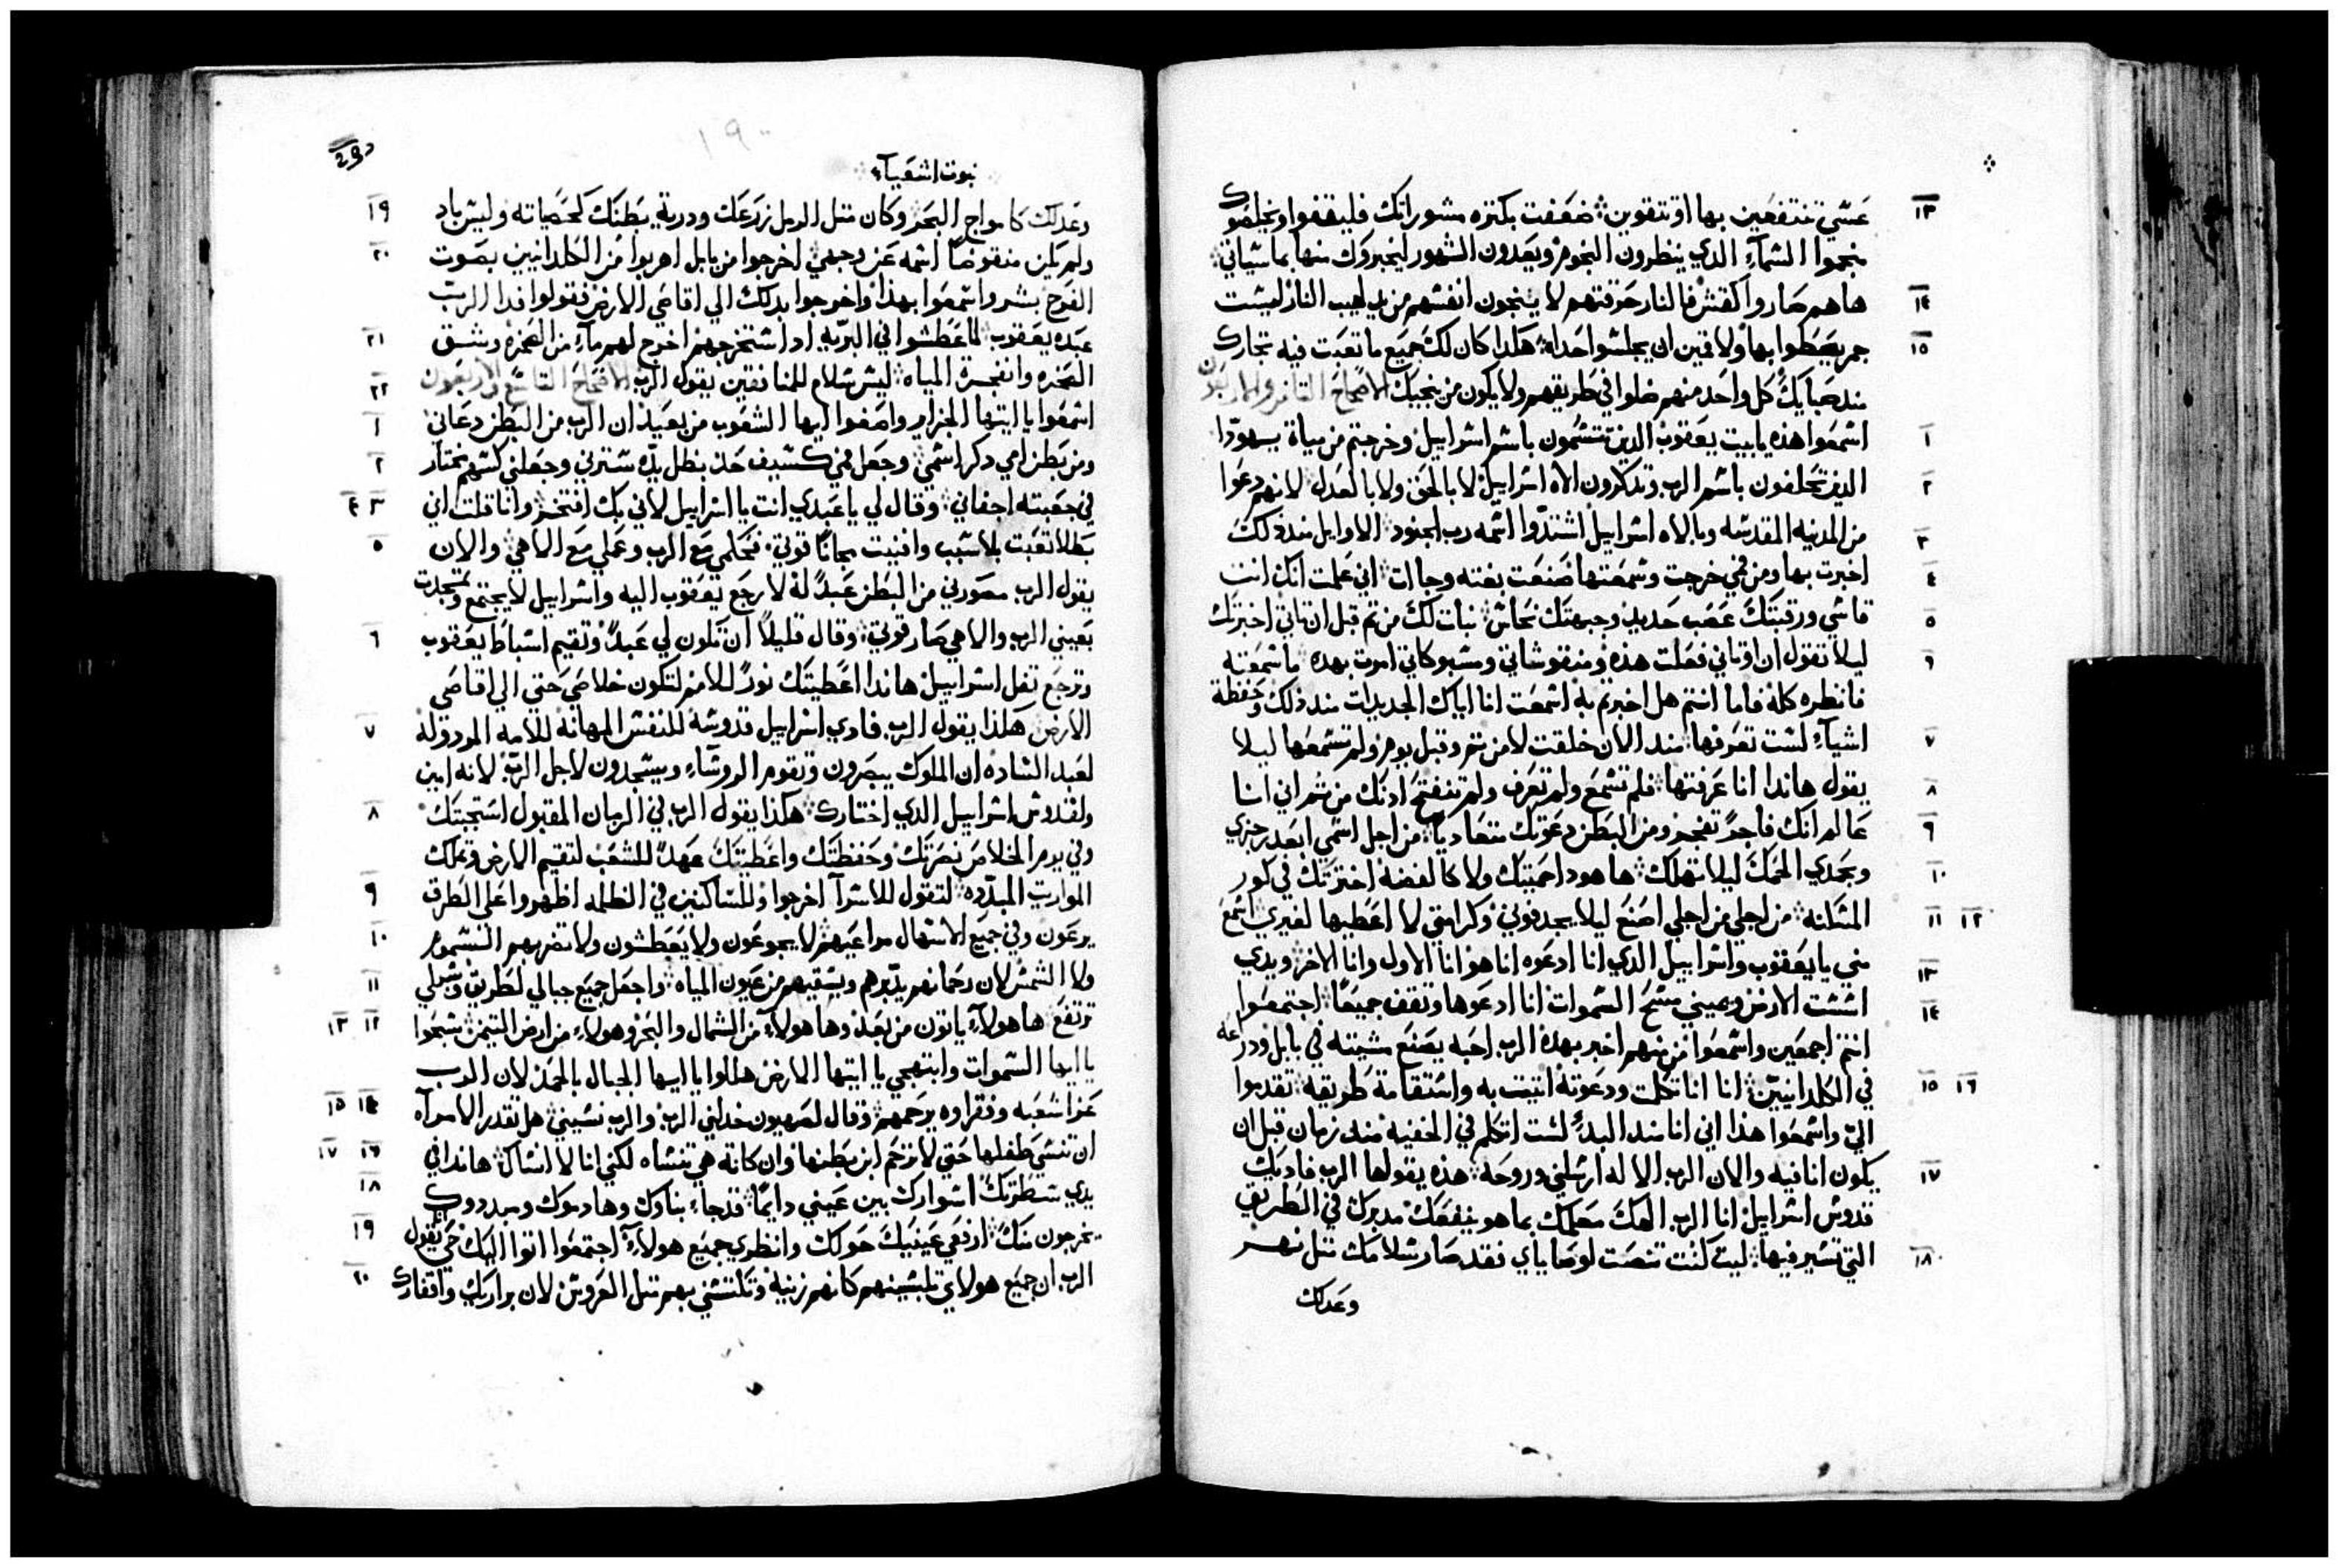 ١٣ عسَي تنتفعين بها او تتقوين؛ ضعفت بكتره مشوراتك فليقفوا ويخلصوك
منجموا السمآءِ الدي ينظرون النجوم ويعَدون الشهور ليخبروك منها بما سياتي؛
١٤ هاهم صاروا كقش فالنار حَرقتهم لا ينجون انفسهم من يد لهيب النار ليست
١٥ جمر يصَطَلوا بها ولا قمين ان يجلسوا حَداه؛ هكدا كان لك جميع ما تعبت فيه تجارك
مند صَبايك كل واحَد منهم ضلوا في طريقهم ولا يكون من ينجيك الاصحَاح التامن والاربعون
١ اسمعوا هذه يا بيت يعَقوب الذين تتسَمون باسم اسراييل وخرجتم من مياة يهودا
٢ الدين تحَلفون باسم الرب وتدكرون الاه اسراييل لا بالحَق ولا بالعَدل لانهم دعوا
٣ من المدينه المقدسه وبالاه اسراييل استندّوا اسمه رب الجنود؛ الاوايل مند دلك
٤ اخبرت بها ومن فمي خرجت وسمعَتها صَنعَت بغته وجاات؛ اني علمت انك انت
٥ قاسي ورقبتَك عصَب حَديد وجبهتَك نحَاس؛ نبات لك من تم قبل ان تاتي اخبرتك
٦ ليلا تقول ان اوتاني فعلت هذه ومنقوشاتي ومسبوكاتي اموت بهده ما سمعته
فانظره كله فاما انتم هل اخبرتم به اسمعَت انا اياك الجديدات مند ذلك وحَفظة
٧ اشيآءِ لست تعَرفها؛ مند الان خلقت لا من تم وقبل يوم ولم تسمعَها ليلا
٨ يقول هاندا انا عَرفتها؛ فلم تسمع ولم تعَرف ولم تنفتح ادنك من تم اني انا
٩ عالم انك فاجرًا تفجر ومن البطن دعَوتك متعَاديًا؛ من اجل اسمي ابعَد رجزي
١٠ وبحَمدي الجمك ليلا تهلك؛ ها هودا حميتك ولا كالفضه اخترتك في كور
١١ ١٢ المسَكنه؛ من اجلي من اجلي اصنع ليلا يجدفوني وكرامتي لا اعَطيها لغيري؛ اسمع
١٣ مني يا يعَقوب واسراييل الدي انا ادعوه انا هو انا الاول وانا الاخر؛ ويدي
١٤ اسست الارض ويميني مسَح السموات انا ادعَوها وتقف جميعًا؛ اجتمعوا
انتم اجمعين واسمعوا من منهم اخبر بهذه الرب احبه يصَنع مشيته في بابل ودراعه
١٥ ١٦ في الكلدانيين؛ انا انا تكلمت ودعَوته اتيت به واستقامة طريقه؛ تقدموا
اليّ واسمعَوا هذا اني انا مند البدءِ لست اتكلم في الخفيه مند زمان قبل ان
١٧ يكون انا فيه والان الرب الاله ارسلني وروحه؛ هذه يقولها الرب فاديك
قدوس اسراييل انا الرب الهك معلمك بما هو ينفعَك مدبرك في الطريق
١٨ التي تسير فيها؛ ليت كنت تنصَت لوصَاياي فقد صَار سلامك متل نهر
وعدلك
29
١٩٠
نبوت اشعيآءِ
١٩ وعَدلك كامواج البحَر؛ وكان متل الرمل زرَعَك ودرية بطنك كحَصياته وليس باد
٢٠ ولم يكن منقوضًا اسمه عن وجهي؛ اخرجوا من بابل اهربوا من الكلدانيين بصَوت
الفرح بشروا اسمعَوا بهذا واخرجوا بدلك الي اقاصي الارض فقولوا فدا الرب
٢١ عبَده يعَقوب؛ لما عَطشوا في البريه اد استخرجهم اخرج لهم مآءِ من الصخره وشق
٢٢ الصخره وانفجرة المياه؛ ليس سلام للمنافقين يقول الرب الاصحَاح التاسع والاربعون
١ اسمعَوا يا ايتها الجزاير واصغوا ايها الشعوب من بعَيد ان الرب من البطن دعَاني
٢ ومن بطن امي دكر اسمي؛ وجعَل فمي كسَيف حَاد بظل يده سترني وجعَلني كسهم مختار
٣ ٤ في جعَبته اخفاني؛ وقال لي يا عَبدي انت يا اسراييل لاني بك افتخر؛ وانا قلت اني
٥ بطلا تعَبت بلا سبب وافنيت مجانًا قوتي؛ فحَكمي مع الرب وعَملي مع الاهي؛ والان
يقول الرب مصَورني من البطن عَبدًا له لارجع يعَقوب اليه واسراييل لا يجتمع وتمجدت
٦ بعيني الرب والاهي صَار قوتي؛ وقال قليلًا ان تكون لي عَبدًا وتقيم اسباط يعَقوب
وترجع تفل اسراييل هاندا اعَطيتك نورًا للامم لتكون خلاصَي حَتي الي اقاصَي
٧ الارض؛ هكذا يقول الرب فادي اسراييل قدوسَه للنفس المهانه للامه المردوله
لعَبد الساده ان الملوك يبصَرون وتقوم الروسَاءِ ويسَجدون لاجل الرب لانه امين
٨ ولقدوس اسراييل الدي اختارك؛ هكذا يقول الرب في الزمان المقبول استجبتك
وفي يوم الخلاص نصَرتك وحَفظتك واعَطيتك عهدًا للشعب لتقيم الارض وتملك
٩ المواريت المبدّده؛ لتقول للاسرآ اخرجوا وللساكنين في الظلمه اظهروا علي الطرق
١٠ يرعَون وفي جميع الاسَهال مراعَيهم؛ لا يجوعَون ولا يعَطشون ولا تضربهم السَموم
١١ ولا الشمس لان رحَمانهم يدبرهم ويسَقيهم من عيون المياه؛ واجعَل جميع جبالي لطريق وسَبلي
١٢ ١٣ ترتفع؛ ها هولآءِ ياتون من بعَد وها هولآءِ من الشمال والبحَر وهولاءِ من ارض التيمن؛ سَبحَوا
يا ايها السموات وابتهجي يا ايتها الارض هللوا يا ايها الجبال بالحَمد لان الرب
١٤ ١٥ عَزا شعَبه وفقراوه يرحَمهم؛ وقال صَهيون خدلني الرب والرب نسَيني؛ هل تقدر الامرآه
١٦ ١٧ ان تنسَي طفلها حَتي لا ترحَم ابن بطنها وان كانة هي تنساه لكني انا لا انساك؛ هاندا في
١٨ يدي سَطرتك اسَوارك بين عَيني دايمًا؛ قد جاءِ بناوك وهادموك ومبددوك
١٩ يخرجون منك؛ ارفعي عَينيك حَولك وانظري جميع هولآءِ اجتمعَوا اتوا اليك حَي يقول
٢٠ الرب ان جميع هولاي تلبسَينهم كانهم زينه وتكتسَي بهم متل العَروس؛ لان براريك واقفارك